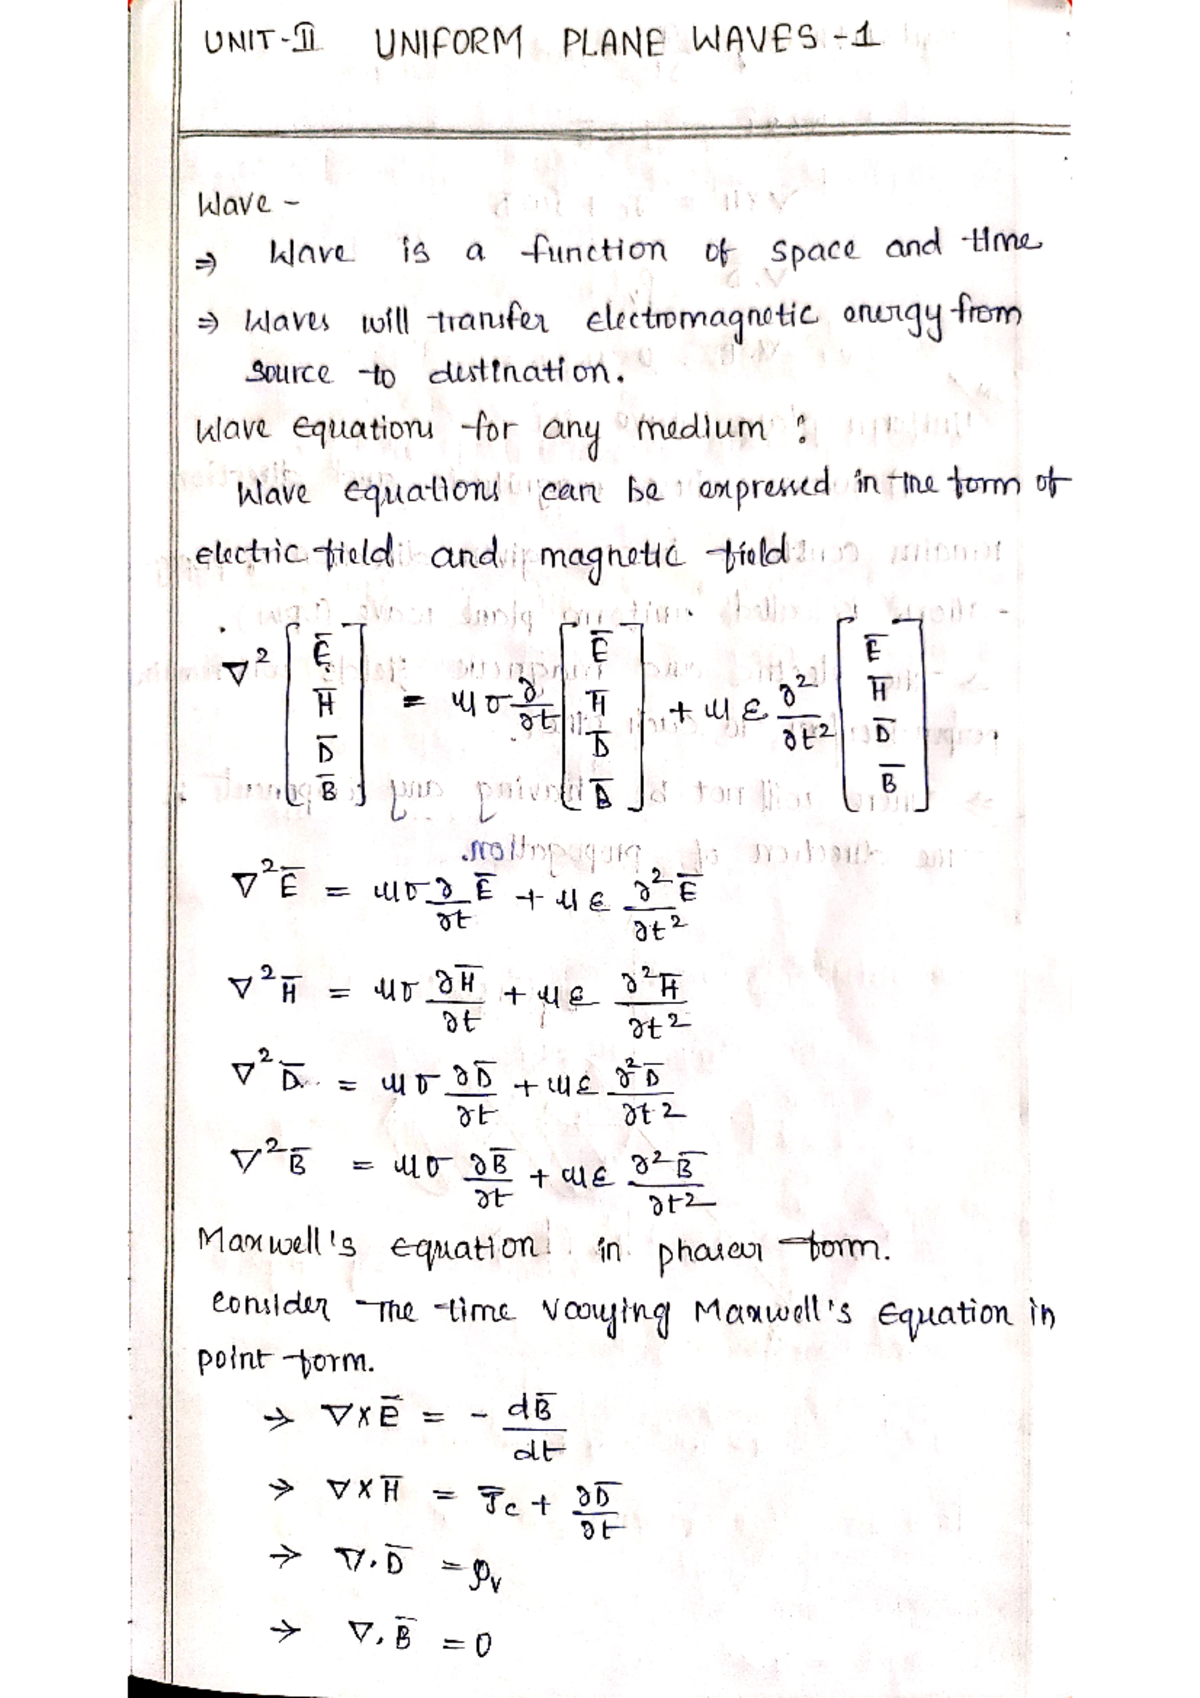 UNIT-II UNIFORM PLANE WAVES-1
Wave -
⇒ Wave is a function of space and time
⇒ Waves will transfer electromagnetic energy from
source to destination.
Wave Equations for any medium :
Wave equations can be expressed in the form of
electric field and magnetic field
∇² [E̅ H̅ D̅ B̅] = μσ ∂/∂t [E̅ H̅ D̅ B̅] + με ∂²/∂t² [E̅ H̅ D̅ B̅]
∇²E̅ = μσ ∂E̅/∂t + με ∂²E̅/∂t²
∇²H̅ = μσ ∂H̅/∂t + με ∂²H̅/∂t²
∇²D̅ = μσ ∂D̅/∂t + με ∂²D̅/∂t²
∇²B̅ = μσ ∂B̅/∂t + με ∂²B̅/∂t²
Maxwell's equation in phasor form.
consider The time varying Maxwell's Equation in
point form.
→ ∇×E̅ = - dB̅/dt
→ ∇×H̅ = J̅c + ∂D̅/∂t
→ ∇.D̅ = ρv
→ ∇.B̅ = 0